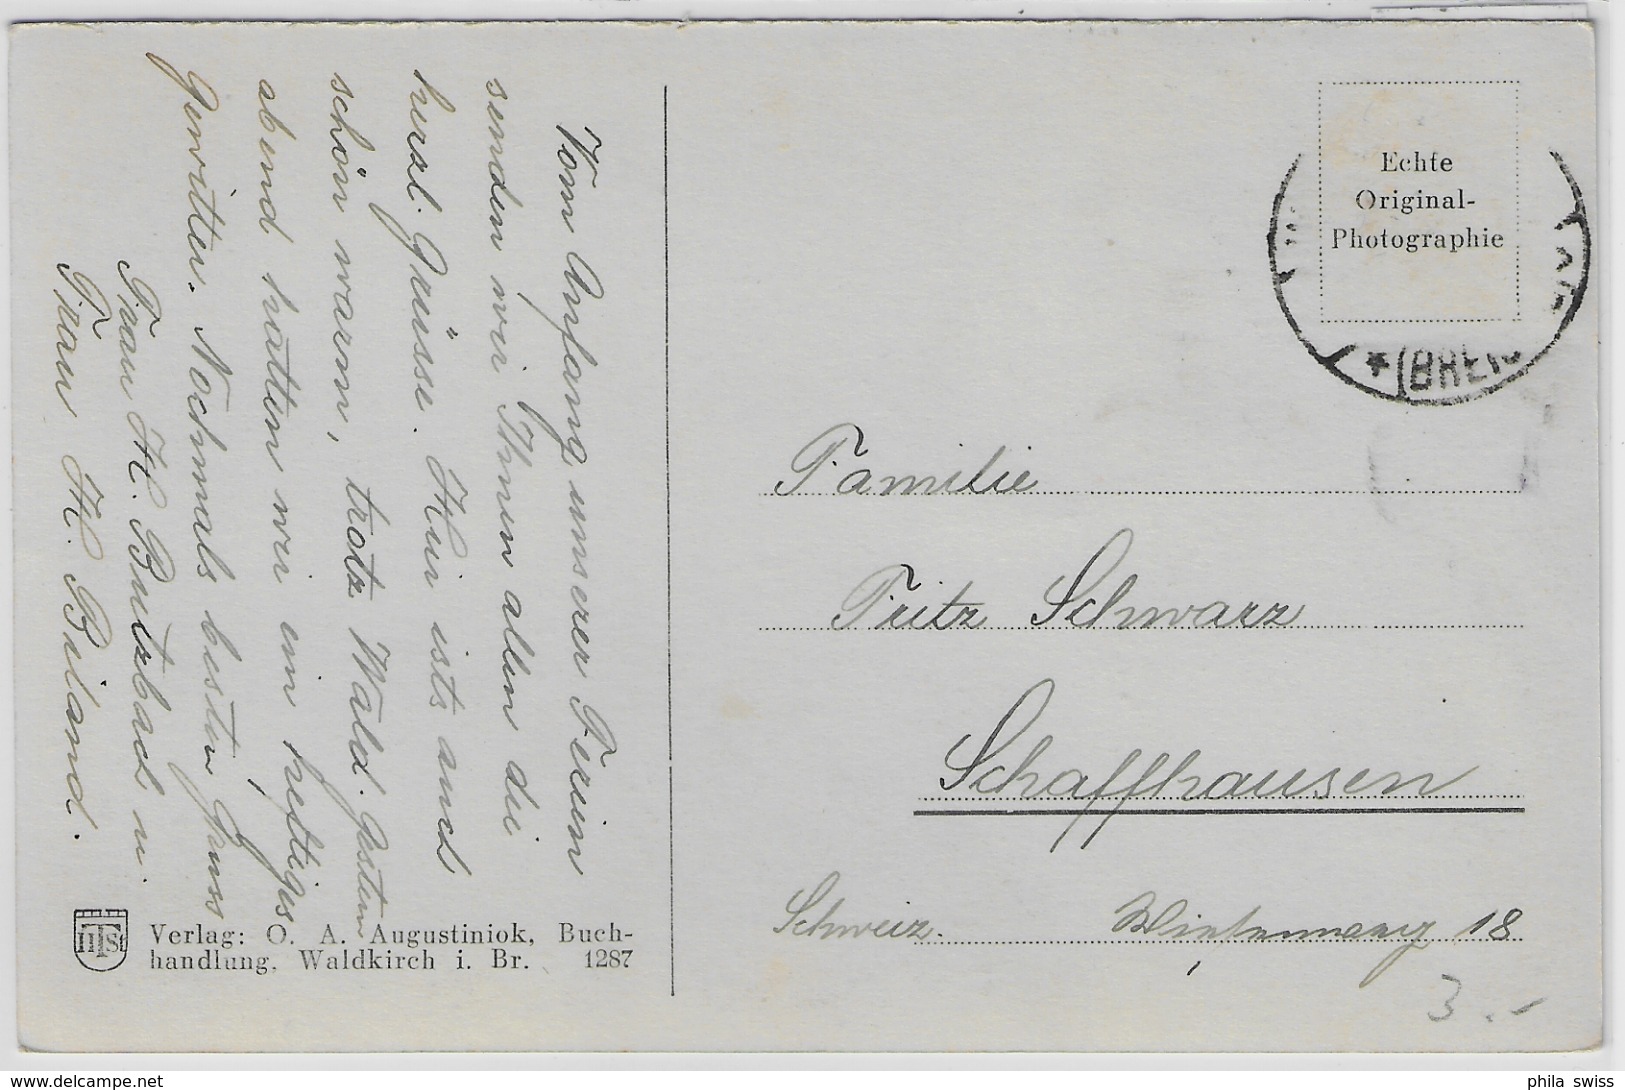 Vom Anfang unserer Ferien
senden wir Ihnen allen die
herzl. Grüsse. Hier ists auch
schön warm, trotz Wald. Gestern
abend hatten wir ein heftiges
Gewitter. Nochmals besten Gruss
Frau H. Butzbach u.
Frau H. Biland.
Verlag: O. A. Augustiniok, Buch-
handlung, Waldkirch i. Br. 1287
HTSt
Echte
Original-
Photographie
* (BREIS
Familie
Fritz Schwarz
Schaffhausen
Schweiz. 18
3.-
phila swiss